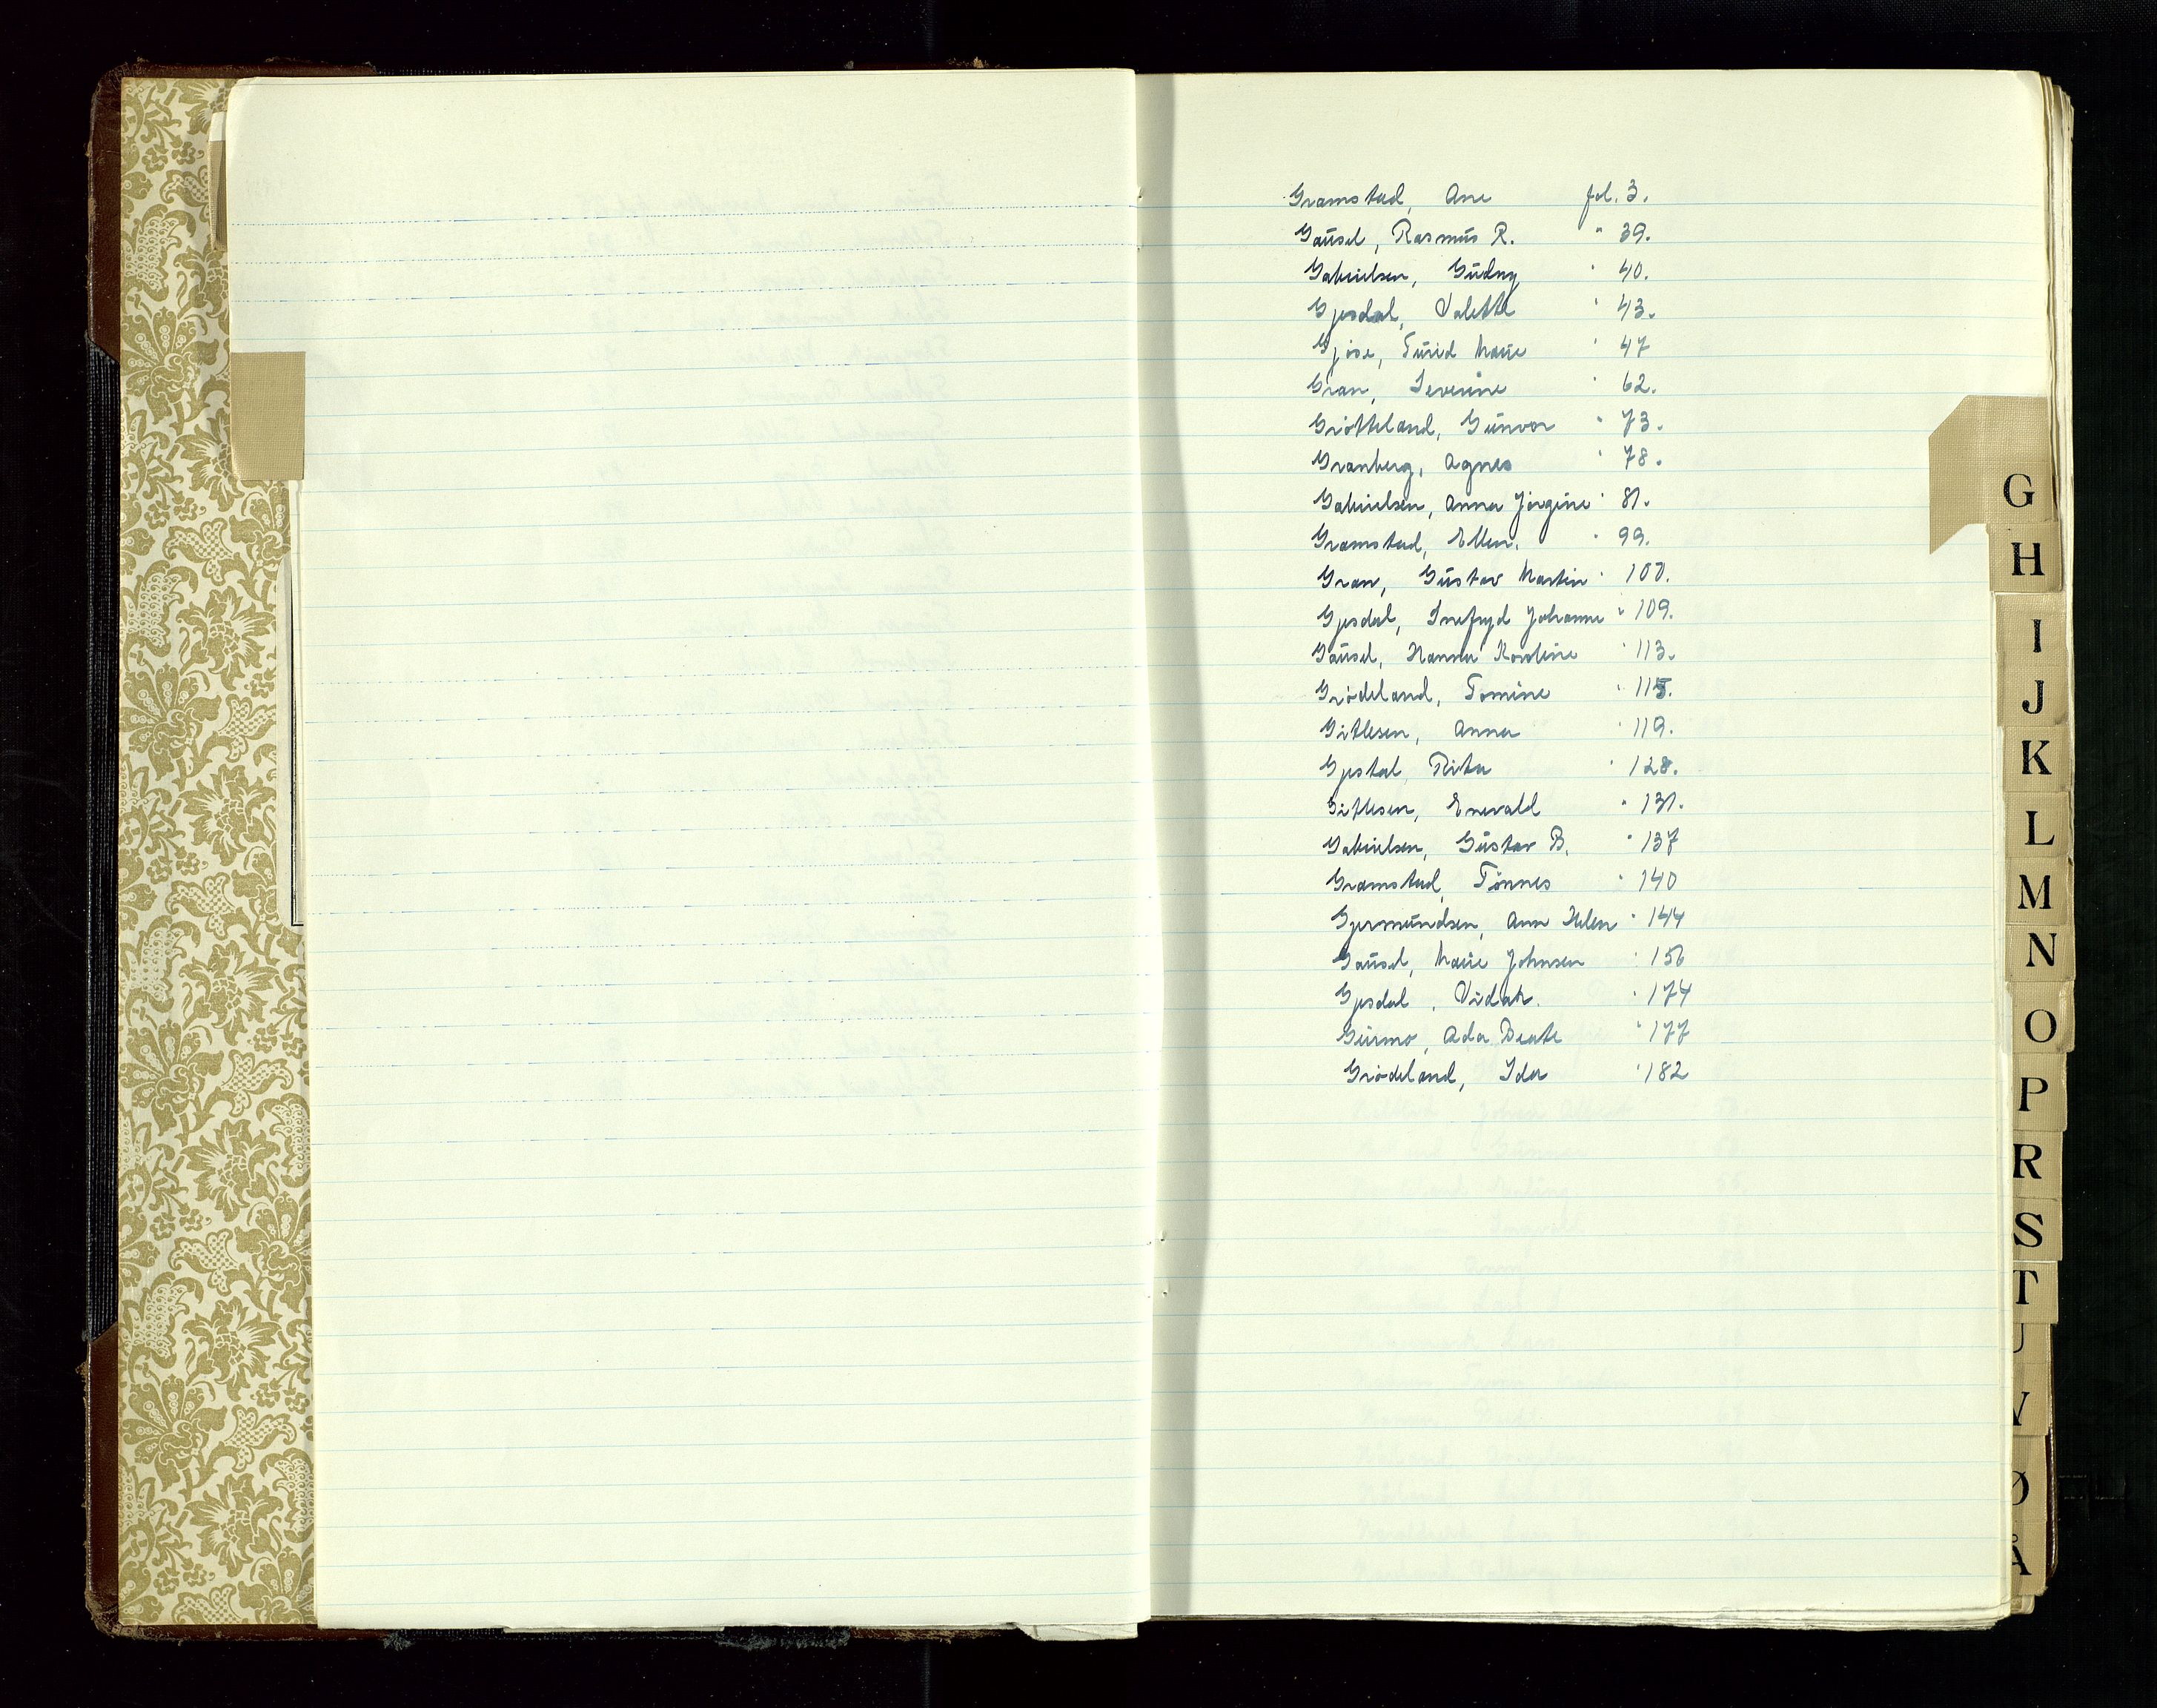 Gramstad, Ane fol. 3.
Gausel, Rasmus R. " 39.
Gabrielsen, Gudny " 40.
Gjesdal, Valette " 43.
Gjöse, Turid Marie " 47
Gran, Severine " 62.
Grötteland, Gunvor " 73.
Granberg, Agnes " 78.
Gabrielsen, Anna Jörgine " 81.
Gramstad, Ellen. " 99.
Gran, Gustav Martin " 100.
Gjesdal, Snefryd Johanne " 109.
Gausel, Hanna Karoline " 113.
Grödeland, Tomine " 115.
Gitlesen, Anna " 119.
Gjestal, Rita " 128.
Gitlesen, Enevald " 131.
Gabrielsen, Gustav B. " 137
Gramstad, Tönnes " 140
Gjermundsen, Ann Helen " 144
Gausel, Marie Johnsen " 156
Gjesdal, Vidar. " 174
Gurmo, Ada Beate " 177
Grödeland, Ida " 182
G
H
I
J
K
L
M
N
O
P
R
S
T
U
V
Ø
Å